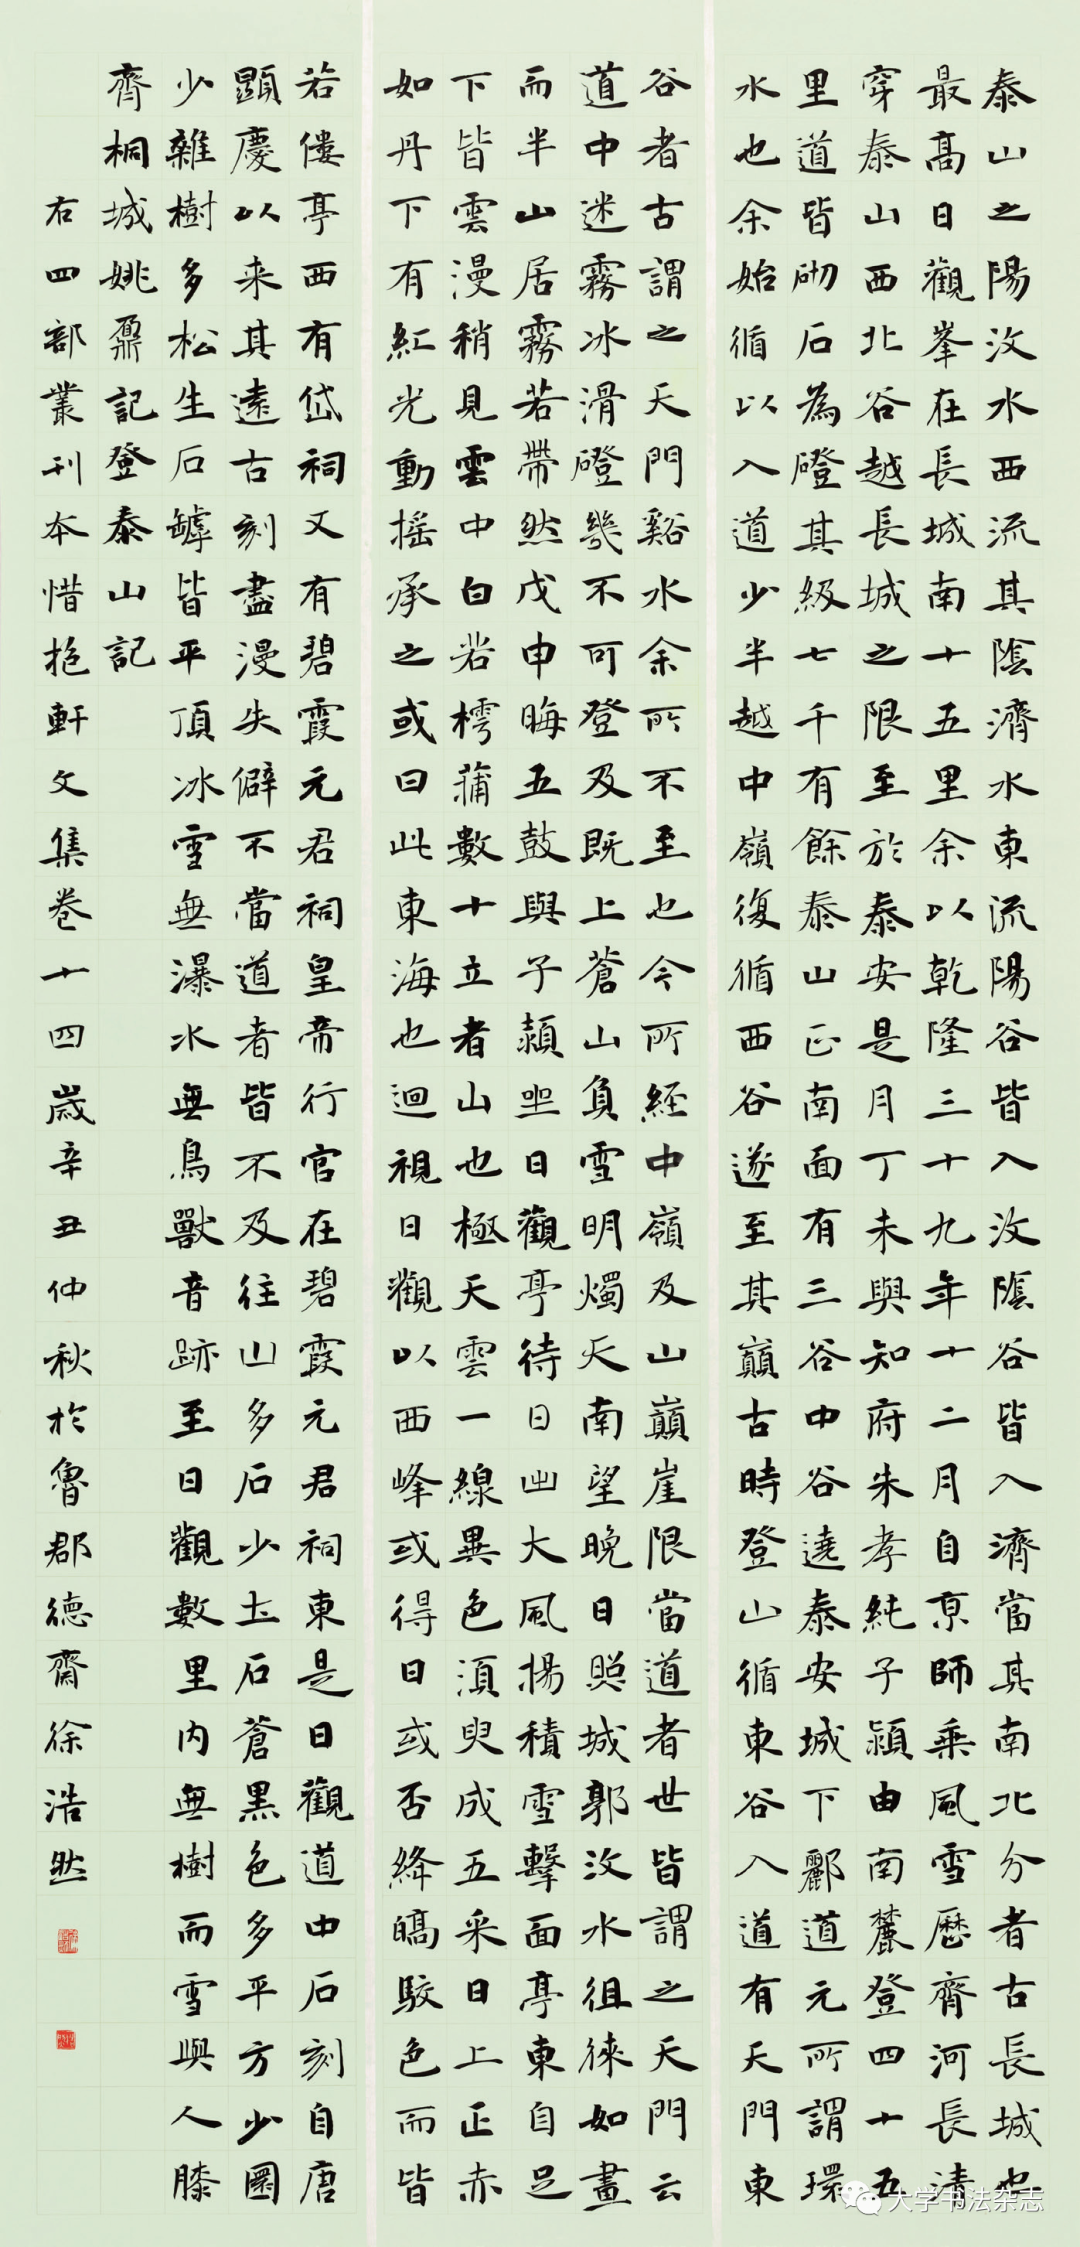 泰山之陽汶水西流其陰濟水東流陽谷皆入汶陰谷皆入濟當其南北分者古長城也
最高日觀峯在長城南十五里余以乾隆三十九年十二月自京師乘風雪歷齊河長清
穿泰山西北谷越長城之限至於泰安是月丁未與知府朱孝純子潁由南麓登四十五
里道皆砌石為磴其級七千有餘泰山正南面有三谷中谷遶泰安城下酈道元所謂環
水也余始循以入道少半越中嶺復循西谷遂至其巔古時登山循東谷入道有天門東
谷者古謂之天門谿水余所不至也今所經中嶺及山巔崖限當道者世皆謂之天門云
道中迷霧冰滑磴幾不可登及既上蒼山負雪明燭天南望晚日照城郭汶水徂徠如畫
而半山居霧若帶然戊申晦五鼓與子潁坐日觀亭待日出大風揚積雪擊面亭東自足
下皆雲漫稍見雲中白若樗蒱數十立者山也極天雲一線異色須臾成五采日上正赤
如丹下有紅光動搖承之或曰此東海也迴視日觀以西峰或得日或否絳皜駮色而皆
若僂亭西有岱祠又有碧霞元君祠皇帝行宮在碧霞元君祠東是日觀道中石刻自唐
顯慶以来其遠古刻盡漫失僻不當道者皆不及往山多石少土石蒼黑色多平方少圜
少雜樹多松生石罅皆平頂冰雪無瀑水無鳥獸音跡至日觀數里内無樹而雪與人膝
齊桐城姚鼐記登泰山記
右四部叢刊本惜抱軒文集卷十四歲辛丑仲秋於魯郡德齋徐浩然
大学书法杂志